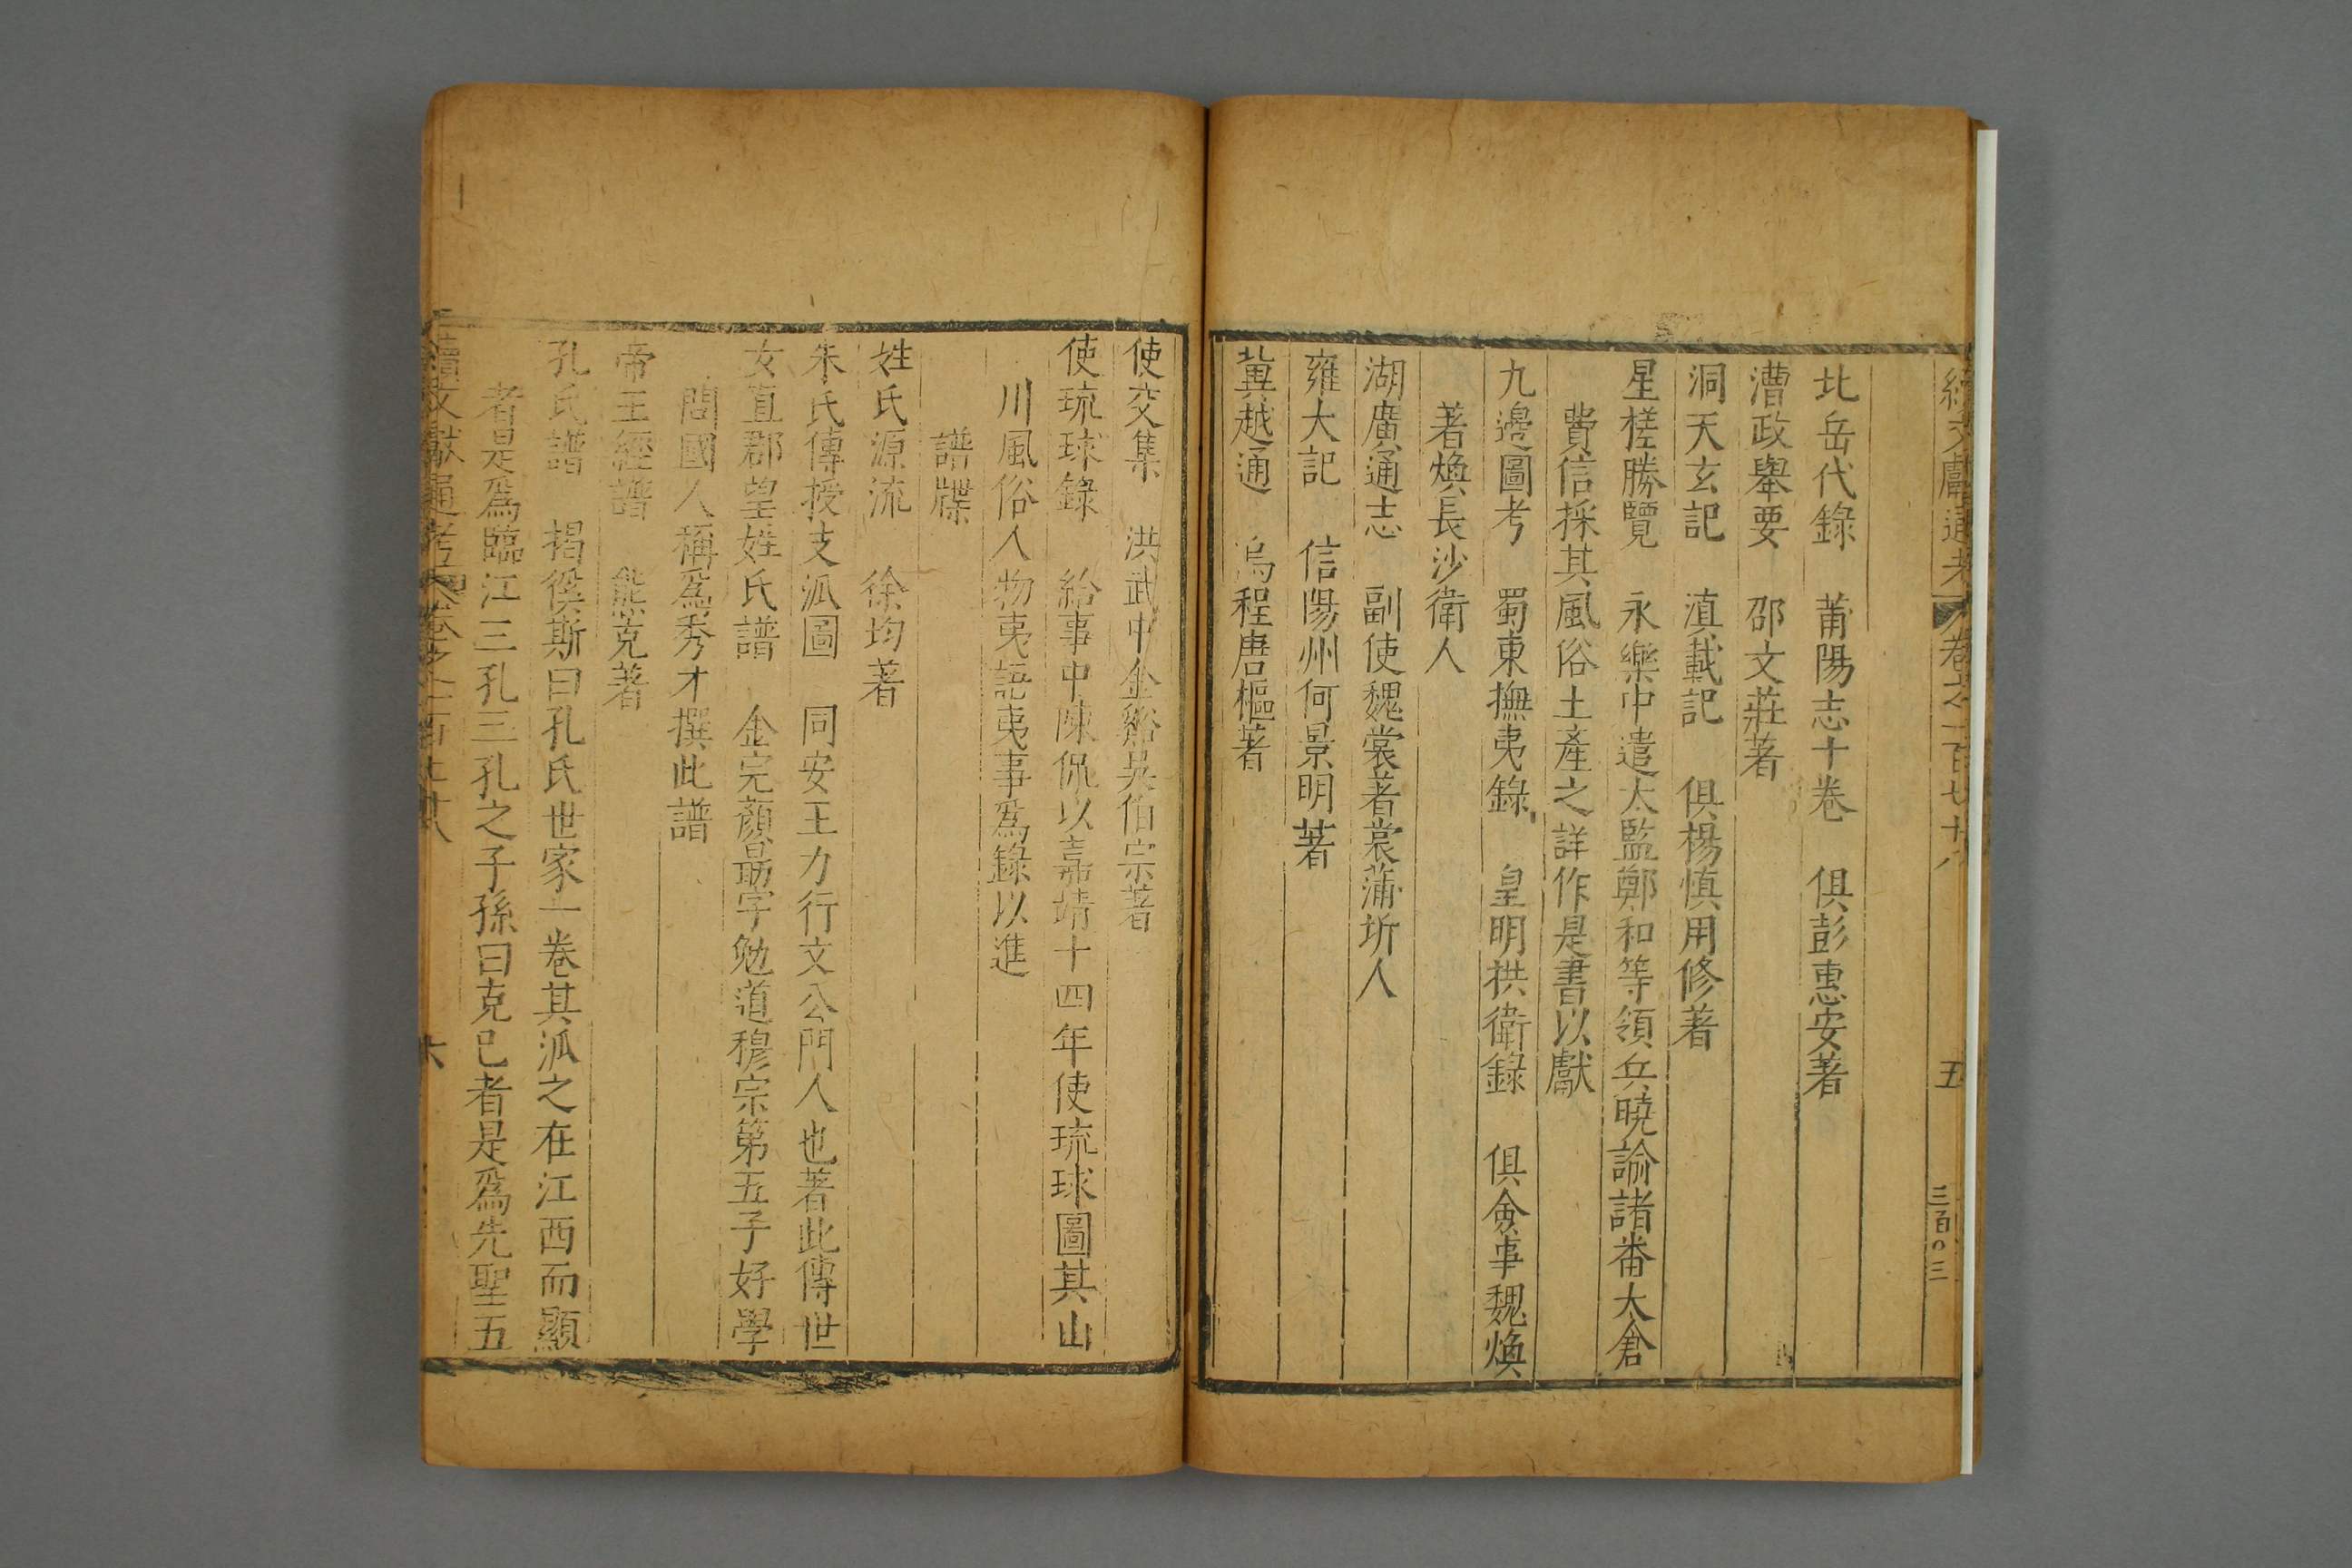 續文獻通考 卷之一百七十八 五 三百〇三
北岳代錄 莆陽志十卷 俱彭惠安著
漕政舉要 邵文莊著
洞天玄記 滇載記 俱楊慎用修著
星槎勝覽 永樂中遣太監鄭和等領兵曉諭諸番大倉
費信採其風俗土產之詳作是書以獻
九邊圖考 蜀東撫夷錄 皇明拱衛錄 俱僉事魏煥
著煥長沙衛人
湖廣通志 副使魏裳著裳蒲圻人
雍大記 信陽州何景明著
冀越通 烏程唐樞著
使交集 洪武中金谿吳伯宗著
使琉球錄 給事中陳侃以嘉靖十四年使琉球圖其山
川風俗人物夷語夷事爲錄以進
譜牒
姓氏源流 徐均著
朱氏傳授支派圖 同安王力行文公門人也著此傳世
女直郡望姓氏譜 金完顏勗字勉道穆宗第五子好學
問國人稱爲秀才撰此譜
帝王經譜 熊克著
孔氏譜 揭傒斯曰孔氏世家一卷其派之在江西而顯
者是爲臨江三孔三孔之子孫曰克己者是爲先聖五
續文獻通考 卷之一百七十八 六